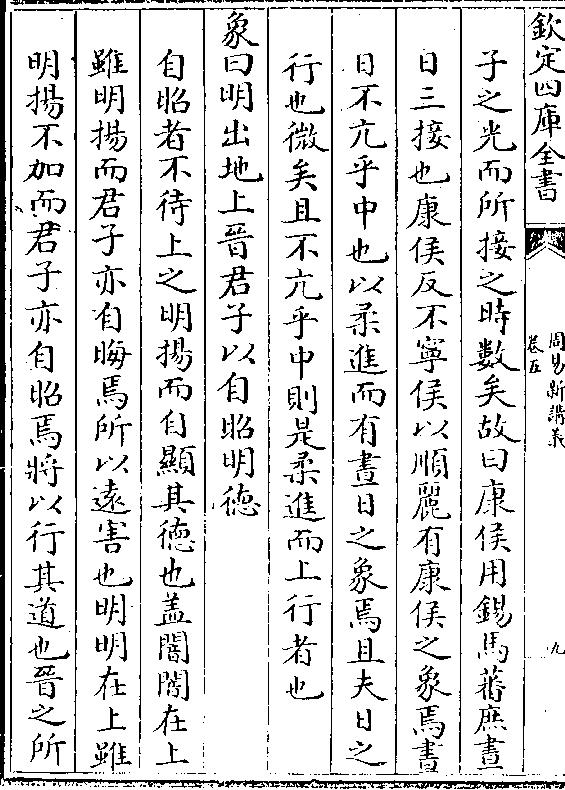 欽定四庫全書
周易新講義
卷五
九
子之光而所接之時數矣故曰康侯用錫馬蕃庶晝
日三接也康侯反不寧侯以順麗有康侯之象焉晝
日不亢乎中也以柔進而有晝日之象焉且夫日之
行也微矣且不亢乎中則是柔進而上行者也
象曰明出地上晉君子以自昭明德
自昭者不待上之明揚而自顯其德也蓋闇闇在上
雖明揚而君子亦自晦焉所以遠害也明明在上雖
明揚不加而君子亦自昭焉將以行其道也晉之所